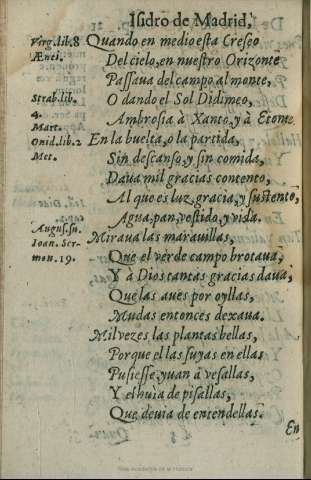 Isidro de Madrid.
Virg. lib. 8
Ænei.
Strab. lib.
4.
Mart.
Ouid. lib. 2
Met.
Augus. su.
Ioan. Ser-
mon. 19.
Quando en medio esta Creseo
Del cielo, en nuestro Orizonte
Passaua del campo al monte,
O dando el Sol Didimeo,
Ambrosia à Xanto, y à Etonte
En la buelta, ò la partida,
Sin descanso, y sin comida,
Daua mil gracias contento,
Al que es luz, gracia, y sustento,
Agua, pan, vestido, y vida.
Miraua las marauillas,
Que el verde campo brotaua,
Y à Dios tantas gracias daua,
Que las aues por oyllas,
Mudas entonces dexaua.
Mil vezes las plantas bellas,
Porque el las suyas en ellas
Pusiesse, yuan à vesallas,
Y el huia de pisallas,
Que deuia de entendellas.
En